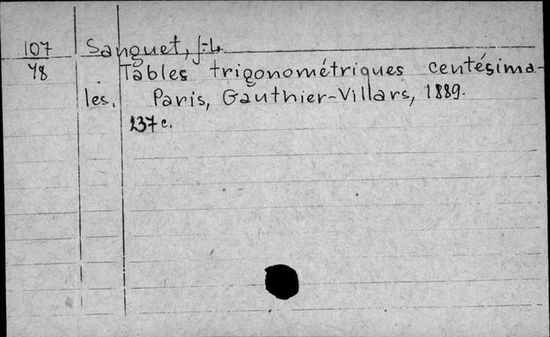 107 Sanguet, J-L.
78 Tables trigonométriques centésima-
les. Paris, Gauthier-Villars, 1889.
237 c.